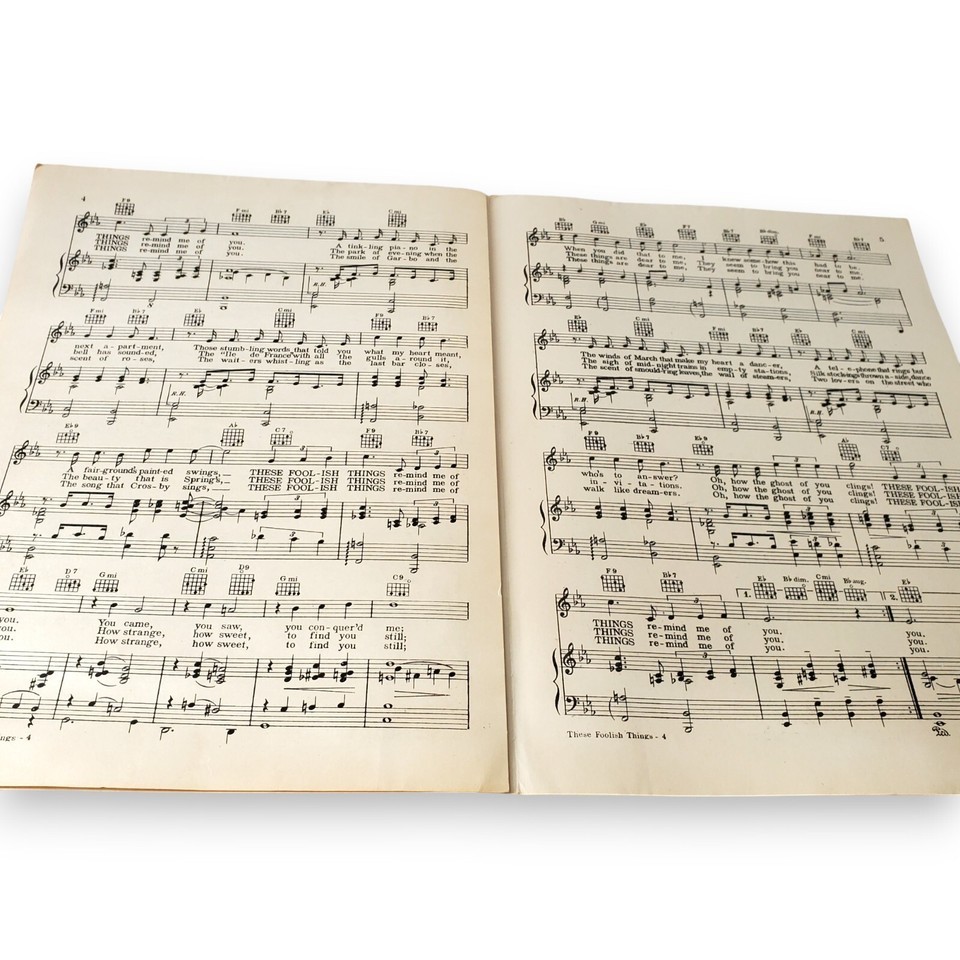 4
F9 Fmi Bb7 Eb Cmi
THINGS re-mind me of you. A tink-ling pia-no in the
THINGS re-mind me of you. The park at eve-ning when the
THINGS re-mind me of you. The smile of Gar-bo and the
R.H.
Fmi Bb7 Eb Cmi F9 Bb7
next a-part-ment, Those stumb-ling words that told you what my heart meant,
bell has sound-ed, The "Ile de France" with all the gulls a-round it,
scent of ro-ses, The wait-ers whist-ling as the last bar clo-ses,
R.H.
Eb9 Ab C7 F9 Bb7
A fair-ground's paint-ed swings, THESE FOOL-ISH THINGS re-mind me of
The beau-ty that is Spring's, THESE FOOL-ISH THINGS re-mind me of
The song that Cros-by sings, THESE FOOL-ISH THINGS re-mind me of
Eb D7 Gmi Cmi D9 Gmi C9
you. You came, you saw, you con-quer'd me;
ou. How strange, how sweet, to find you still;
ou. How strange, how sweet, to find you still;
ngs - 4
5
Eb Gmi Bb7 Eb dim. Fmi Bb7
When you did that to me, I knew some-how this had to be.
These things are dear to me, They seem to bring you near to me.
These things are dear to me, They seem to bring you near to me.
Eb Cmi Fmi Bb7 Eb Cmi
The winds of March that make my heart a danc-er, A tel-e-phone that rings but
The sigh of mid-night trains in emp-ty sta-tions, Silk stockings thrown a-side, dance
The scent of smould-'ring leaves, the wail of steam-ers, Two lov-ers on the street who
R.H.
R.H.
F9 Bb7 Eb9 Ab C7
who's to an-swer? Oh, how the ghost of you clings! THESE FOOL-ISH
in-vi-ta-tions. Oh, how the ghost of you clings! THESE FOOL-ISH
walk like dream-ers. Oh, how the ghost of you clings! THESE FOOL-ISH
F9 Bb7 1. Eb Bb dim. Cmi Bb aug. 2. Eb
THINGS re-mind me of you. you.
THINGS re-mind me of you. you.
THINGS re-mind me of you. you.
Ped.
These Foolish Things - 4